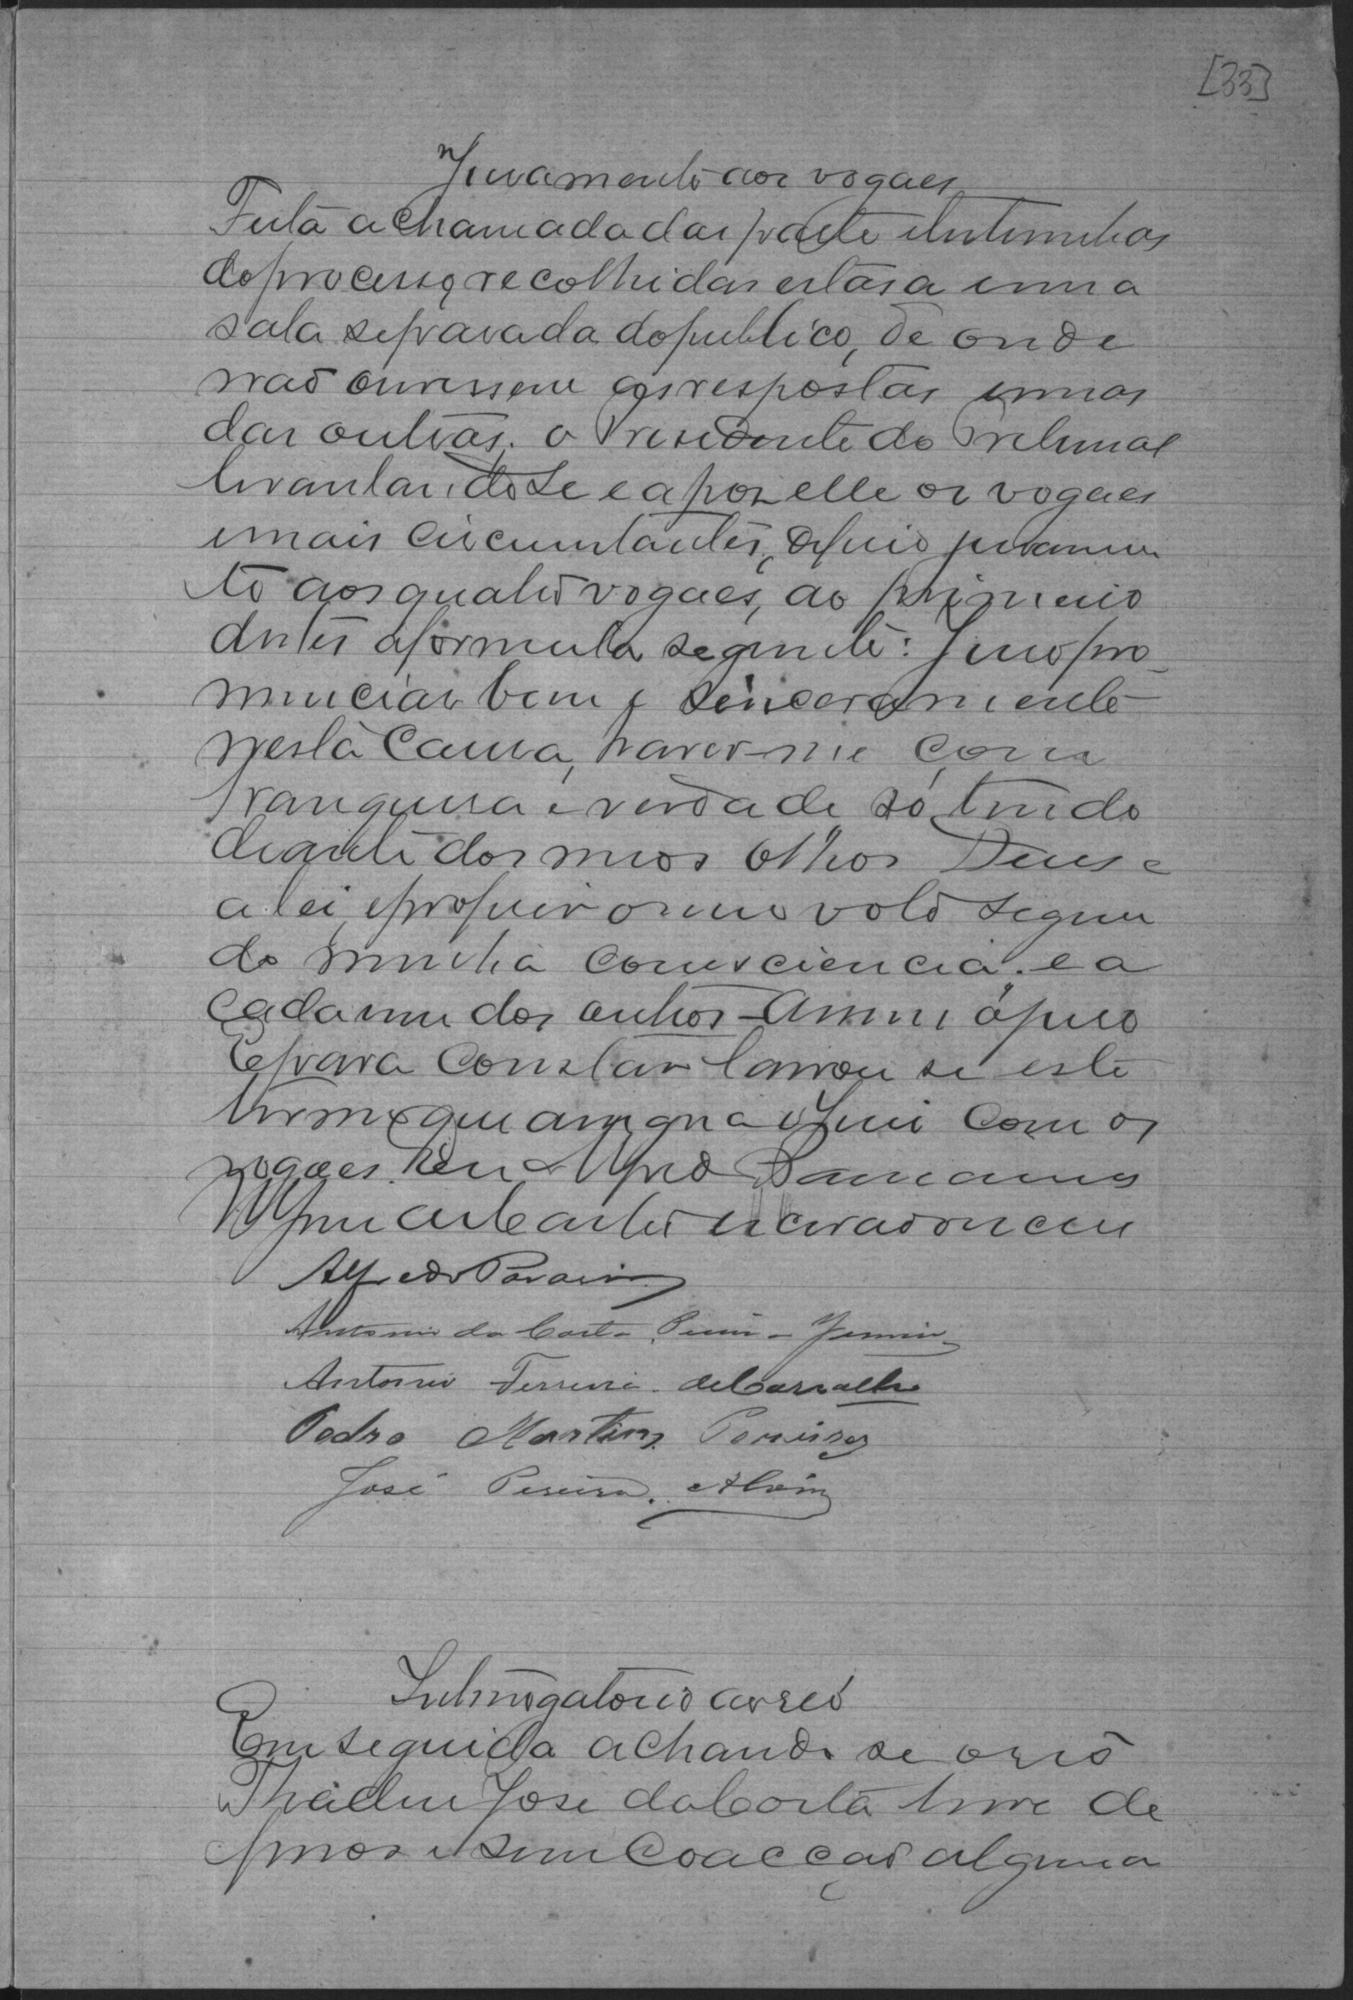 [33]
Juramento aos vogaes
Feita a chamada das partes e testemunhas
do processo, recolhidas estas a uma
sala separada do publico, de onde
não ouvissem as respostas umas
das outras, o Presidente do Tribunal
levantando se e apos elle os vogaes
e mais circumstantes, deferio juramen
to aos quatro vogaes, ao primeiro
destes a formula seguinte: Juro pro-
nunciar bem e sinceramente
nesta causa, haver-me com
franqueza e verdade só tendo
diante dos meus olhos Deus e
a lei, e proferir o meu voto segun
do minha consciencia, e a
cada um dos outros - Assim o juro
E para constar lavrou se este
termo que assigna o Juiz com os
vogaes. Eu Alfredo
escrivão o escrevi
Alfredo
Antonio da Costa
Antonio Ferreira de Carvalho
Pedro Martins Pereira
José Pereira Alvim
Interrogatorio ao reó
Em seguida achando se o réo
Thadeu José da Costa livre de
ferros e sem coacção alguma